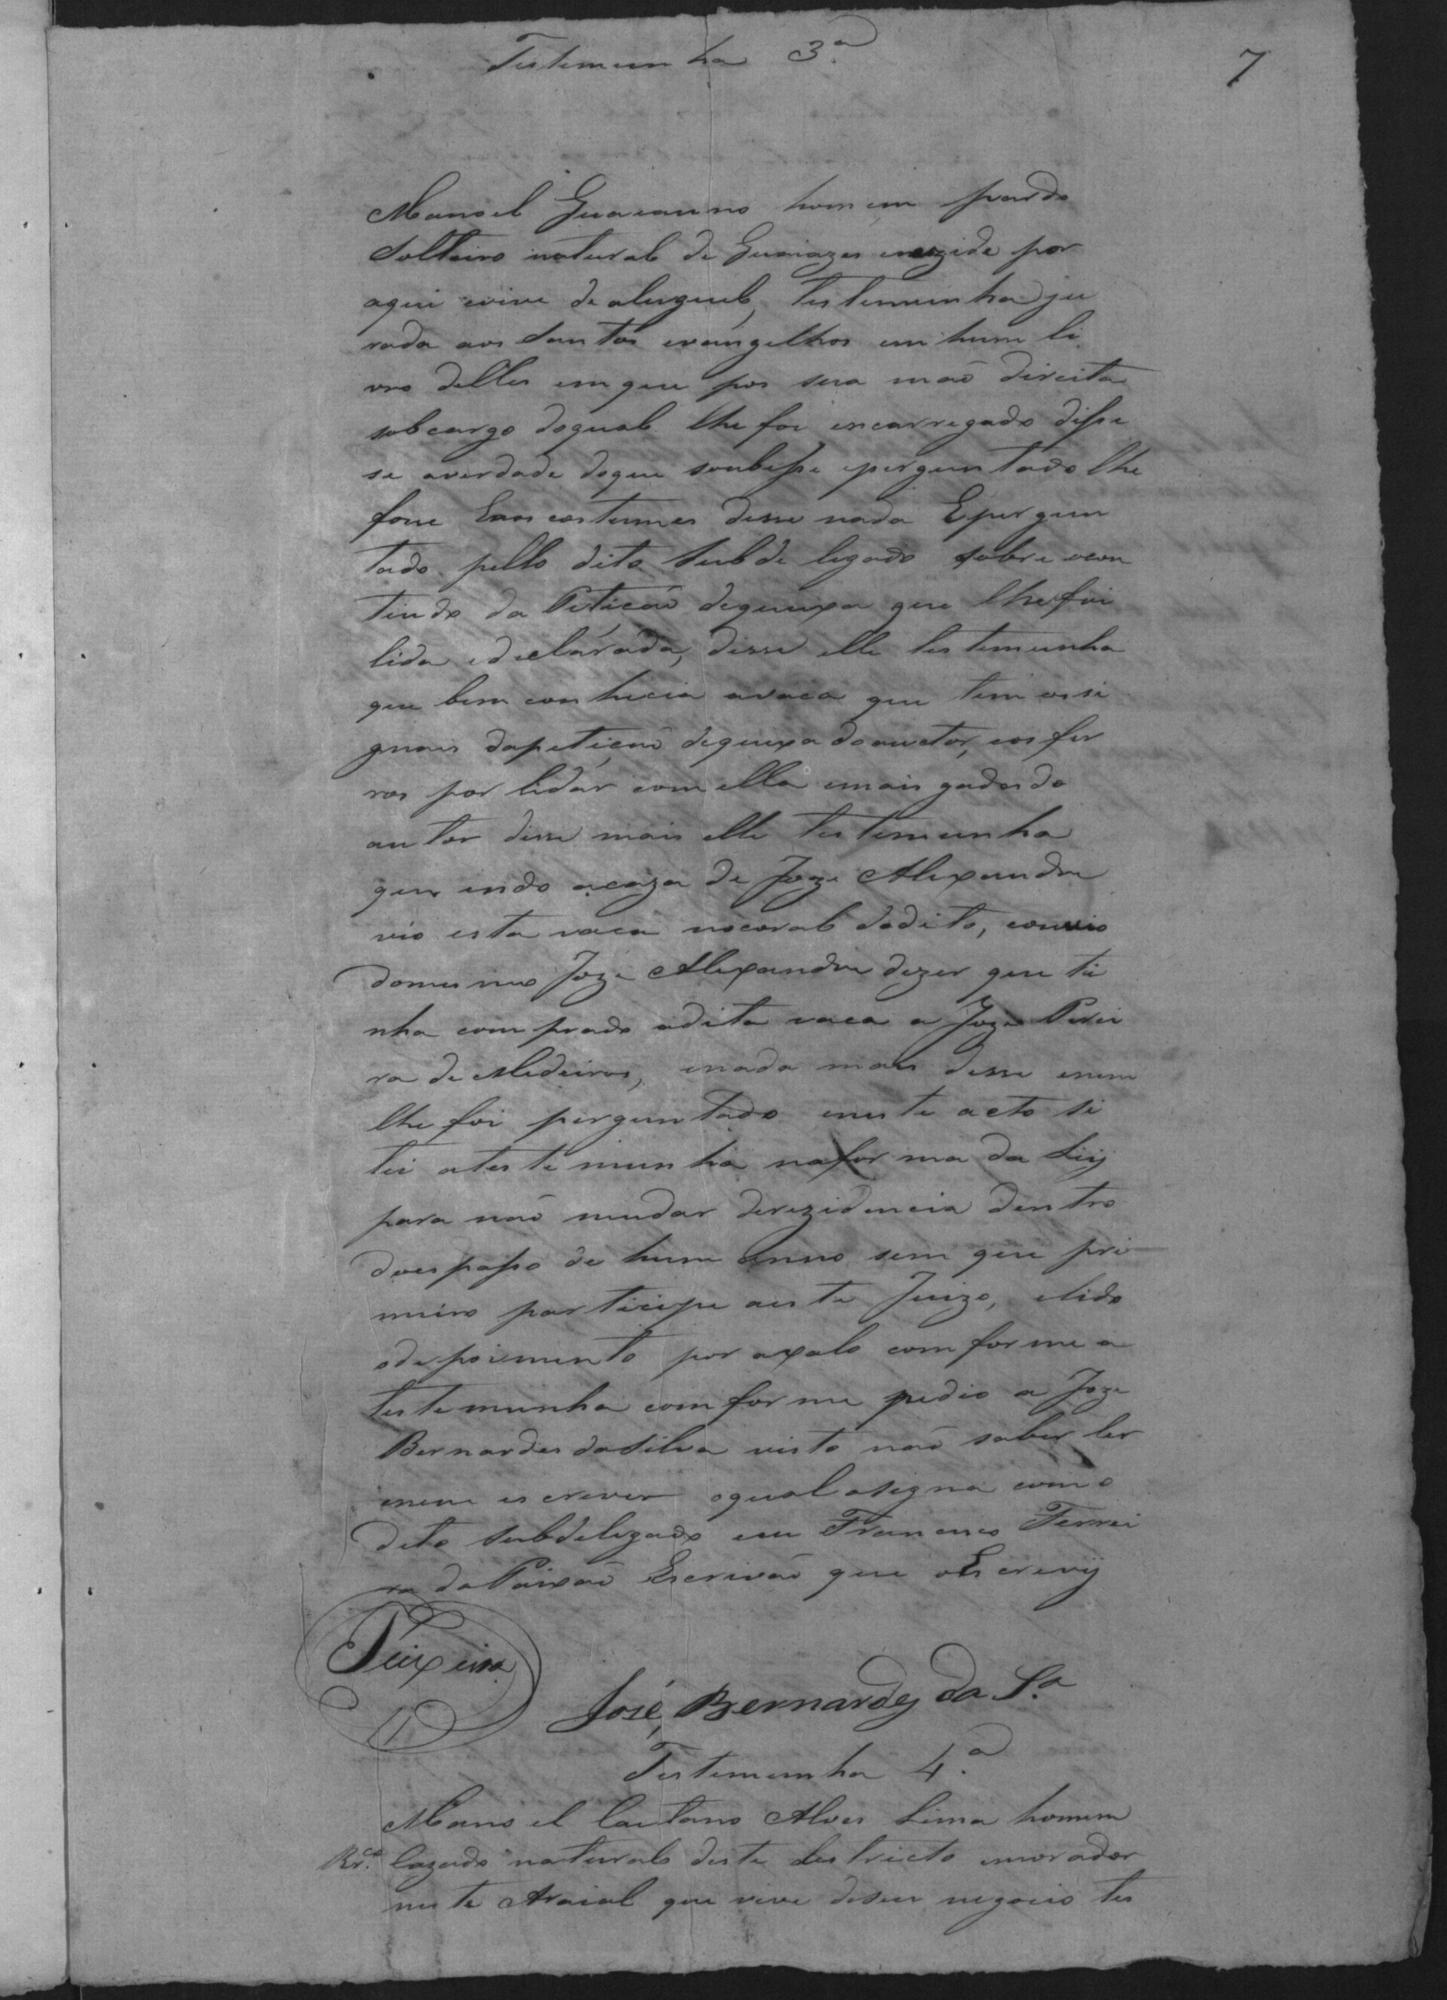 Testemunha 3.ª
7
Manoel Guaianno homem pardo
Solteiro natural de Guaiazes erezide por
aqui evive de aluguel, testemunha ju
rada aos Santos evangelhos em hum li
vro delles em que pos sua maõ direita
sobcargo doqual lhe foi encarregado dissi
se averdade doque soubesse eperguntado lhe
fosse Eaos costumes disse nada E pergun
tado pello dito Subdelegado sobre ocon
tiudo da Peticaõ dequeixa que lhe foi
lida edeclarada, disse elle testemunha
que bem conhecia avaca que tem os si
gnais dapeticaõ dequeixa do auctor, eos fer
ros por lidar com ella emais gados do
autor disse mais elle testemunha
que indo acaza de Joze Alexandre
vio esta vaca nocoral dodito, eouvio
domesmo Joze Alexandre dizer que ti
nha comprado adita vaca a Joze Perei
ra de Medeiros, enada mais disse enem
lhe foi perguntado eneste acto si
tei atestemunha naforma da Leij
para naõ mudar derezidencia dentro
doespasso de hum anno sem que pri
meiro participe aeste Juizo, elido
odepoimento por axalo comforme a
testemunha comforme pedio a Joze
Bernardes dasilva visto naõ saber ler
enem escrever oqual asigna com o
dito Subdelegado eu Francisco Ferrei
ra da Paixaõ Escrivaõ que oEscrevij
Teixeira
José Bernardes da S.ª
Testemunha 4.ª
Manoel Caetano Alves Lima homem
Br.co Cazado natural deste destricto emorador
neste Araial que vive deseu negocio tes